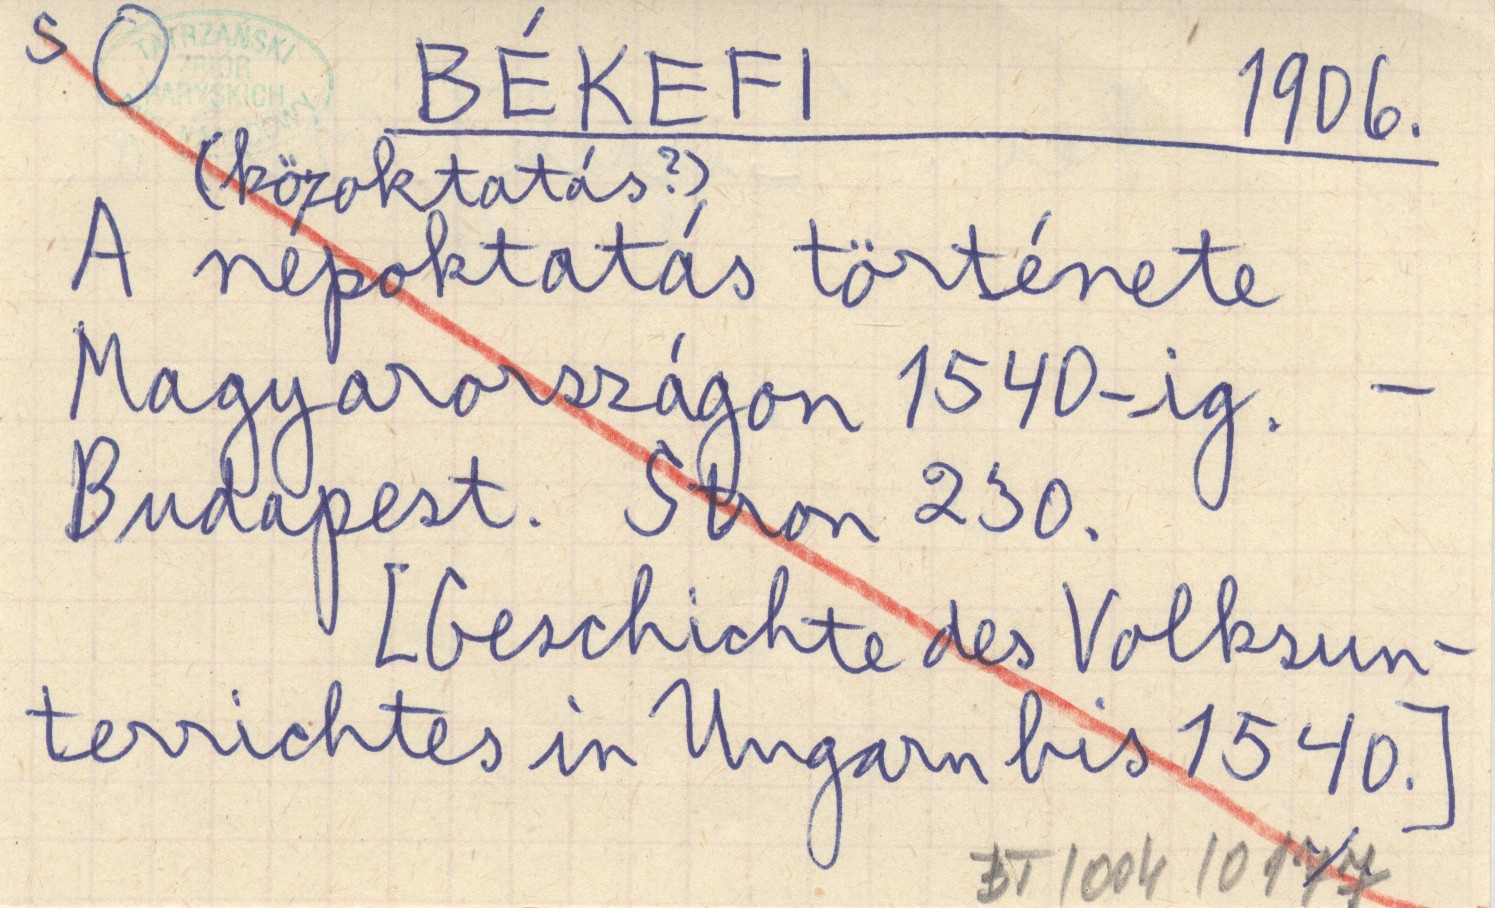 S O BÉKEFI 1906.
TATRZAŃSKI
ZBIÓR
PARYSKICH
(közoktatás?)
A népoktatás története
Magyarországon 1540-ig. —
Budapest. Stron 230.
[Geschichte des Volksun-
terrichtes in Ungarn bis 1540.]
BT/004/0177